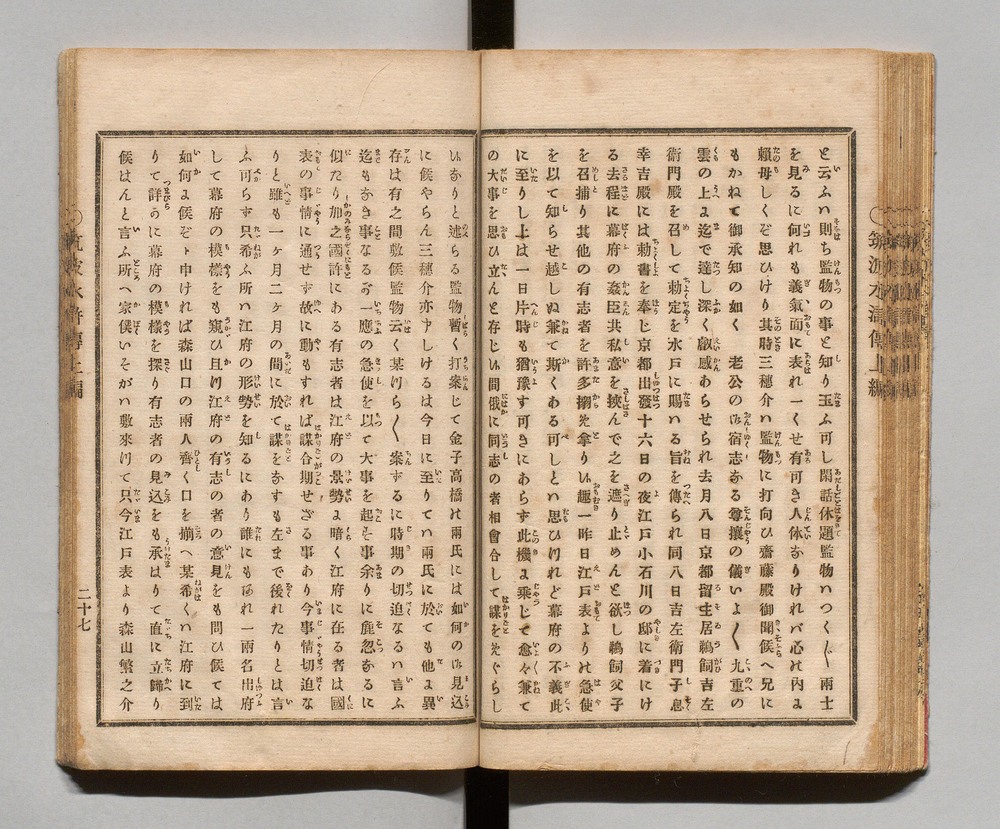 と云ふハ則ち監物の事と知り玉ふ可し閑話休題監物ハつく〴〵兩士
を見るに何れも義氣面に表れ一くせ有可き人体なりけれバ心の内ょ
頼母しくぞ思ひけり其時三穗介ハ監物に打向ひ齋藤殿御聞候へ兄に
もかねて御承知の如く 老公の御宿志なる尊攘の儀いよ〳〵九重の
雲の上ょ迄で達し深く叡感あらせられ去月八日京都留主居鵜飼吉左
衛門殿を召して勅定を水戸に賜ハる旨を傳られ同八日吉左衛門子息
幸吉殿には勅書を奉じ京都出發十六日の夜江戸小石川の邸に着にけ
る去程に幕府の姦臣共私意を挾んで之を遮り止めんと欲し鵜飼父子
を召捕り其他の有志者を許多搦め拿りし趣一昨日江戸表よりの急使
を以て知らせ越しぬ兼て斯くある可しとハ思ひけれど幕府の不義此
に至りし上は一日片時も猶豫す可きにあらず此機ょ乗じて愈々兼て
の大事を思ひ立んと存じ候間俄に同志の者相會合して謀をめぐらし
居りと述らる監物暫く打案じて金子高橋の兩氏には如何の御見込
に候やらん三穗介亦申しけるは今日に至りてハ兩氏に於ても他ょ異
存は有之間敷候監物云く某つら〳〵案ずるに時期の切迫なるハ言ふ
迄もなき事なるが一應の急使を以て大事を起さん事余りに麁忽なるに
似たり加之國許にある有志者は江府の景勢ょ暗く江府に在る者は國
表の事情に通せず故に動もすれば謀合期せざる事あり今事情切迫な
りと雖も一ヶ月二ヶ月の間に於て謀をなすも左まで後れたりとは言
ふ可らず只希ふ所ハ江府の形勢を知るにあり誰にもあれ一兩名出府
して幕府の模樣をも窺ひ且つ江府の有志の者の意見をも問ひ候ては
如何ょ候ぞト申ければ森山口の兩人齊く口を揃へ某希くハ江府に到
りて詳らに幕府の模樣を探り有志者の見込をも承はりて直に立歸り
候はんと言ふ所へ家僕いそがハ敷來りて只今江戸表より森山繁之介
筑波水滸傳上編
二十七
筑波水滸傳上編